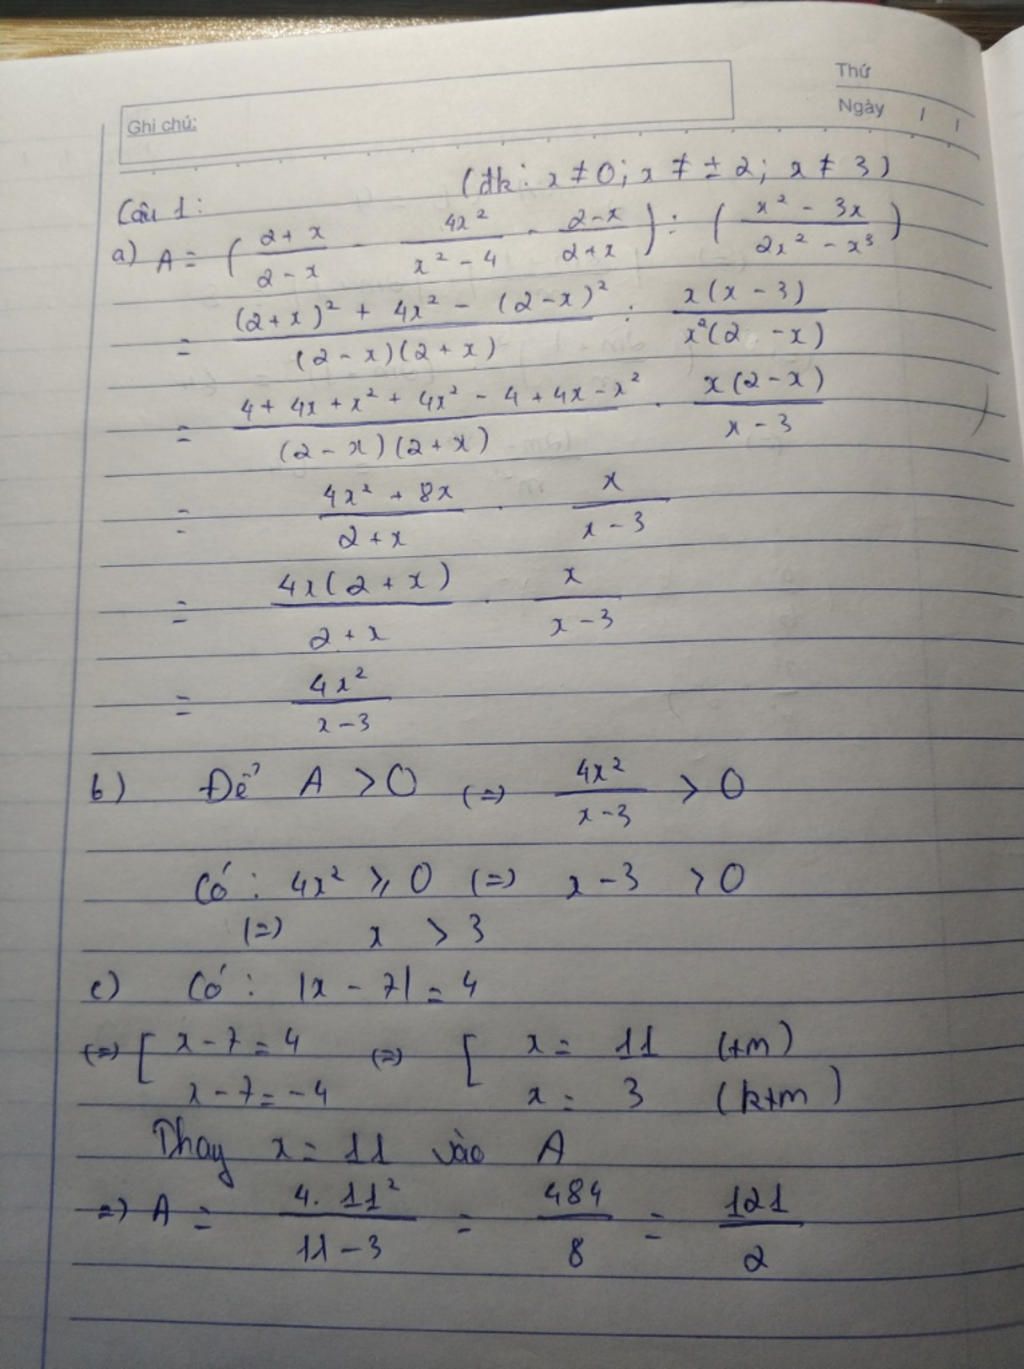 Thứ
Ghi chú:
Ngày / /
Câu 1: (đk: x ≠ 0; x ≠ ± 2; x ≠ 3)
a) A = ( (2 + x)/(2 - x) - 4x²/(x² - 4) - (2-x)/(2+x) ) : ( (x² - 3x)/(2x² - x³) )
= ((2+x)² + 4x² - (2-x)²)/((2-x)(2+x)) : (x(x-3))/(x²(2-x))
= (4 + 4x + x² + 4x² - 4 + 4x - x²)/((2-x)(2+x)) . (x(2-x))/(x-3)
= (4x² + 8x)/(2+x) . x/(x-3)
= (4x(2+x))/(2+x) . x/(x-3)
= 4x²/(x-3)
b) Để A > 0 (=) 4x²/(x-3) > 0
Có: 4x² ⩾ 0 (=) x - 3 > 0
(=) x > 3
c) Có: |x - 7| = 4
(=) [ x - 7 = 4 (=) [ x = 11 (tm)
x - 7 = -4 x = 3 (ktm)
Thay x = 11 vào A
=) A = (4. 11²)/(11 - 3) = 484/8 = 121/2